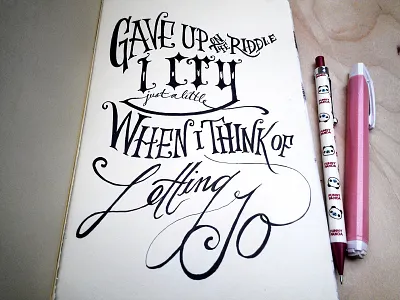 GAVE UP ON THE RIDDLE
I cry
just a little
WHEN I THINK OF
Letting Go